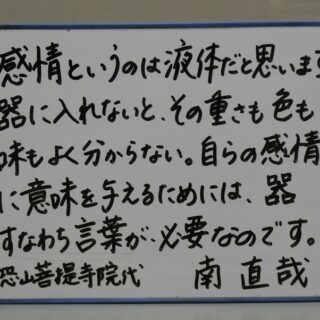 感情というのは液体だと思います
器に入れないと、その重さも色も
味もよく分からない。自らの感情
に意味を与えるためには、器
すなわち言葉が必要なのです。
恐山菩提寺院代 南 直哉